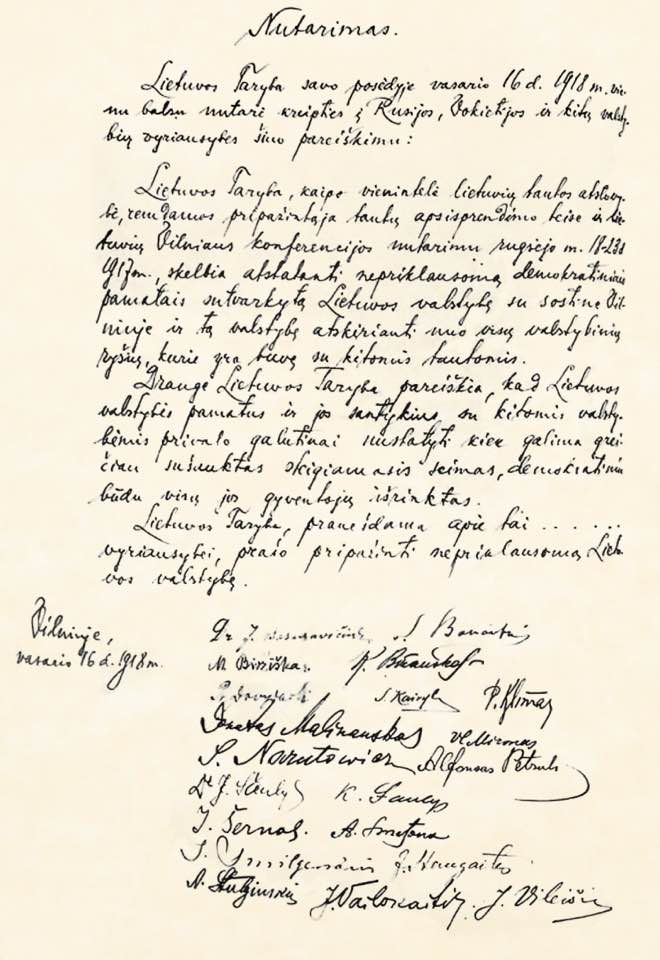 Nutarimas.
Lietuvos Taryba savo posėdyje vasario 16 d. 1918 m. vie-
nu balsu nutarė kreipties į Rusijos, Vokietijos ir kitų valsty-
bių vyriausybes šiuo pareiškimu:
Lietuvos Taryba, kaipo vienintelė lietuvių tautos atstovy-
bė, remdamos pripažintąja tautų apsisprendimo teise ir lie-
tuvių Vilniaus konferencijos nutarimu rugsėjo m. 18-23 d
1917 m., skelbia atstatanti nepriklausomą demokratiniais
pamatais sutvarkytą Lietuvos valstybę su sostine Vil-
niuje ir tą valstybę atskirianti nuo visų valstybinių
ryšių, kurie yra buvę su kitomis tautomis.
Drauge Lietuvos Taryba pareiškia, kad Lietuvos
valstybės pamatus ir jos santykius su kitomis valsty-
bėmis privalo galutinai nustatyti kiek galima grei-
čiau sušauktas steigiamasis seimas, demokratiniu
būdu visų jos gyventojų išrinktas.
Lietuvos Taryba, pranešdama apie tai . . . . . .
vyriausybei, prašo pripažinti nepriklausomą Lietu-
vos valstybę.
Vilniuje,
vasario 16 d. 1918 m.
Dr. J. Basanavičius J. Banaitis
M. Biržiška K. Bizauskas
P. Dovydaitis S. Kairys P. Klimas
Donatas Malinauskas Vl. Mironas
S. Narutowicz Alfonsas Petrulis
Dr J. Šaulys K. Šaulys
J. Šernas A. Smetona
J. Smilgevičius J. Staugaitis
A. Stulginskis J. Vailokaitis J. Vileišis